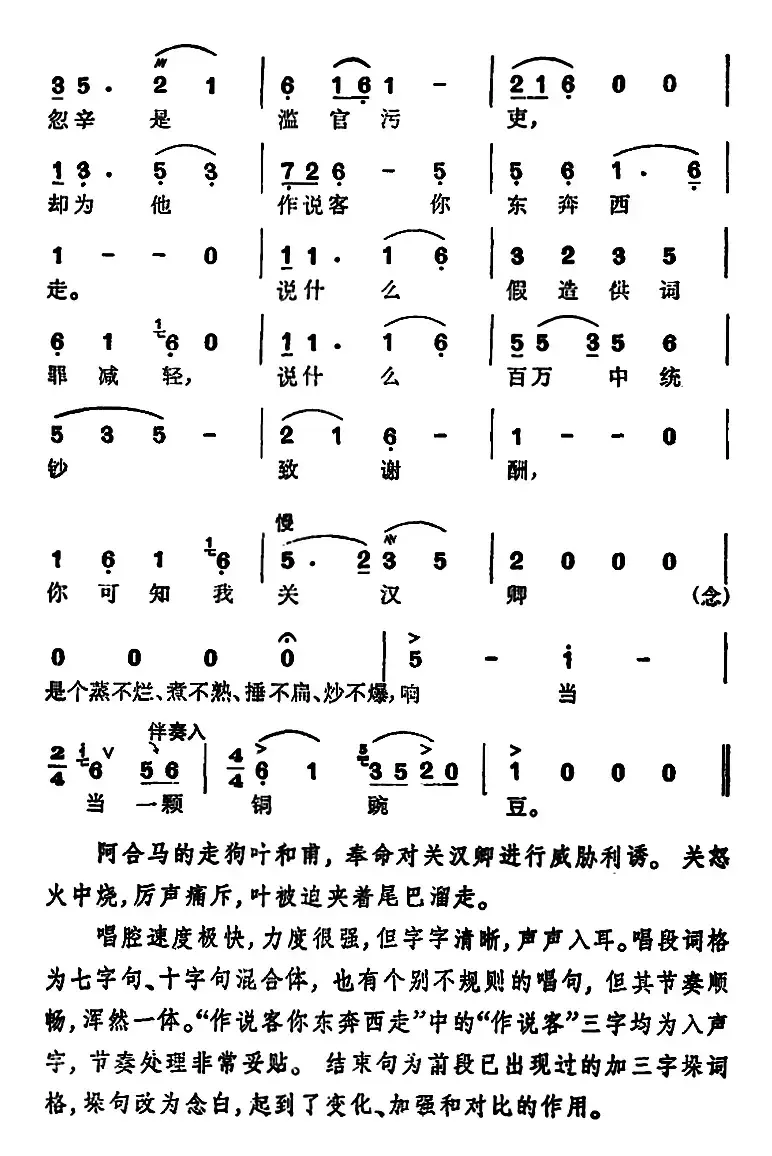 3 5 . 2 1 | 6 1 6 1 - | 2 1 6 0 0 |
忽辛 是 滥 官 污 吏，
1 3 . 5 3 | 7 2 6 - 5 | 5 6 1 . 6 |
却为 他 作说客 你 东 奔 西
1 - - 0 | 1 1 . 1 6 | 3 2 3 5 |
走。 说什 么 假 造 供 词
6 1 1 6 0 | 1 1 . 1 6 | 5 5 3 5 6 |
罪 减 轻， 说什 么 百万 中 统
5 3 5 - | 2 1 6 - | 1 - - 0 |
钞 致 谢 酬，
慢
1 6 1 1 6 | 5 . 2 3 5 | 2 0 0 0 |
你 可 知 我 关 汉 卿 (念)
0 0 0 0 | 5 - 1 - |
是个蒸不烂、煮不熟、捶不扁、炒不爆，响 当
伴奏入
2/4 1 6 ∨ 5 6 | 4/4 6 1 5 3 5 2 0 | 1 0 0 0 ‖
当 一颗 铜 豌 豆。
阿合马的走狗叶和甫，奉命对关汉卿进行威胁利诱。关怒
火中烧，厉声痛斥，叶被迫夹着尾巴溜走。
唱腔速度极快，力度很强，但字字清晰，声声入耳。唱段词格
为七字句、十字句混合体，也有个别不规则的唱句，但其节奏顺
畅，浑然一体。“作说客你东奔西走”中的“作说客”三字均为入声
字，节奏处理非常妥贴。结束句为前段已出现过的加三字垛词
格，垛句改为念白，起到了变化、加强和对比的作用。